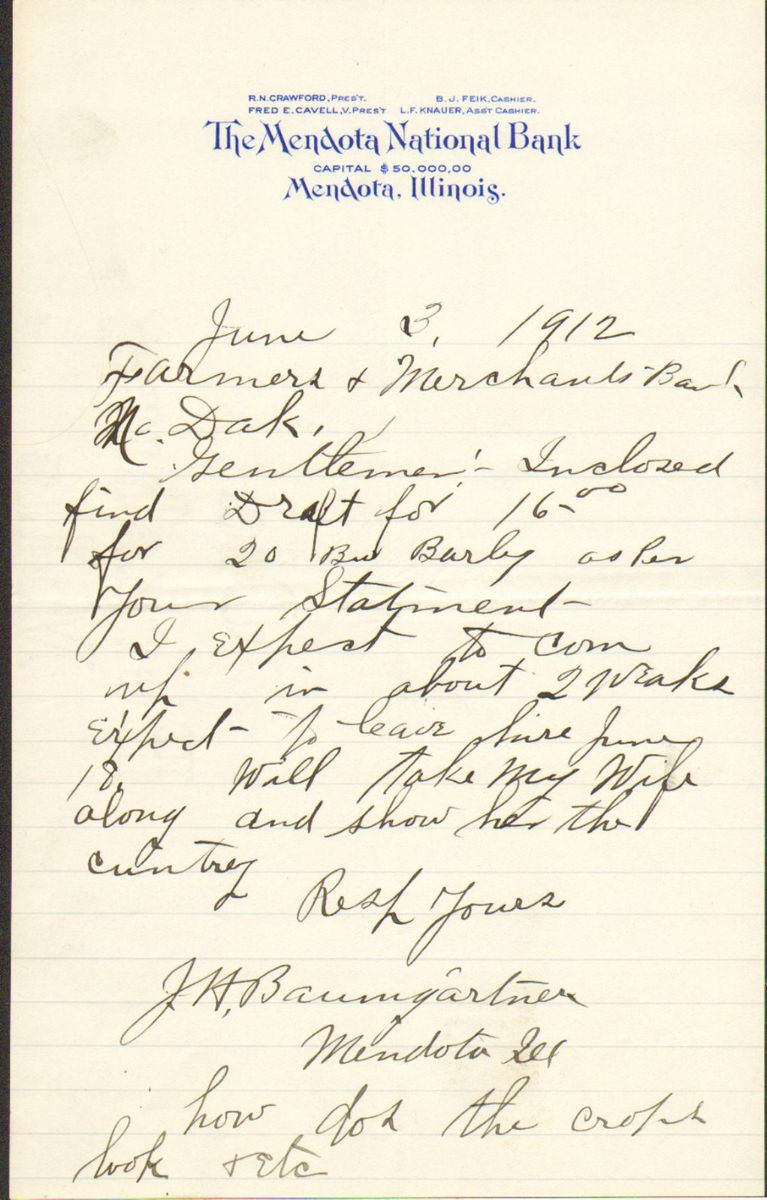 R.N. CRAWFORD, PRES'T. B. J. FEIK, CASHIER.
FRED E. CAVELL, V. PRES'T L. F. KNAUER, ASS'T CASHIER.
The Mendota National Bank
CAPITAL $50.000,00
Mendota, Illinois.
June 3, 1912
Farmers & Merchants Bank
No. Dak.
Gentlemen:- Inclosed
find Draft for 16-00
for 20 Bu Barly as Per
Your Statment-
I Expect to com
up in about 2 Weaks
Expect- to leave hire June
18. Will take My Wife
along and show her the
cuntrey
Resp Yours
J.H. Baumgartner
Mendota Ill
how dos the crops
look & Etc